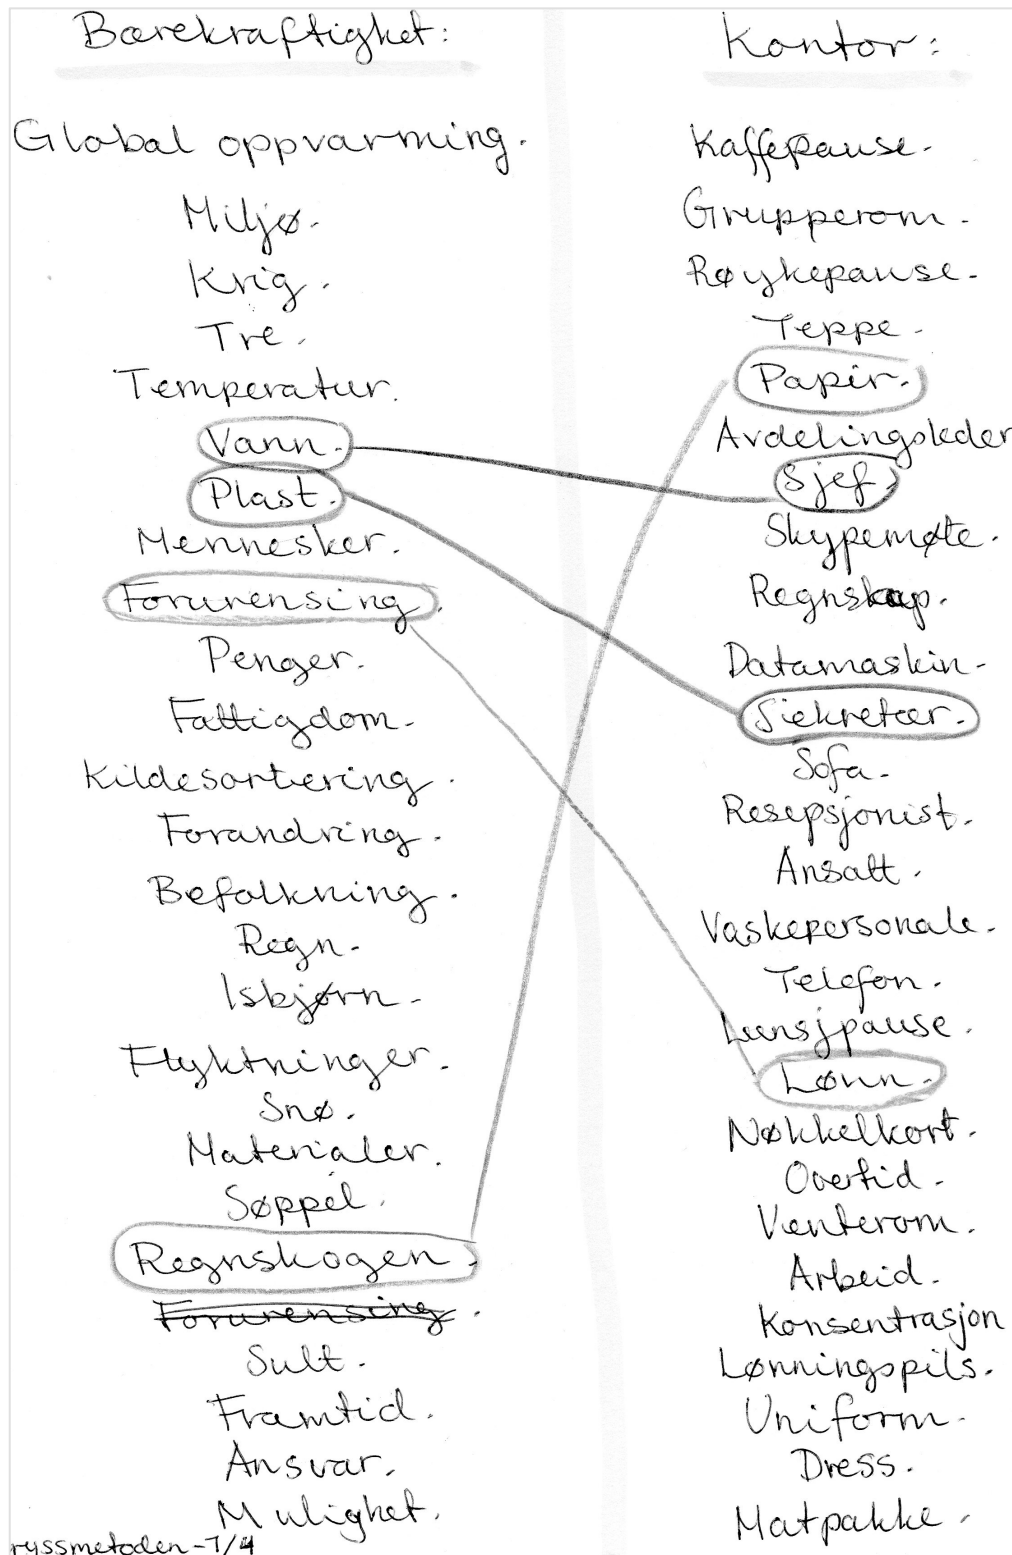 Bærekraftighet:
Global oppvarming.
Miljø.
Krig.
Tre.
Temperatur.
Vann.
Plast.
Mennesker.
Forurensing.
Penger.
Fattigdom.
Kildesortering.
Forandring.
Befolkning.
Regn.
Isbjørn.
Flyktninger.
Snø.
Materialer.
Søppel.
Regnskogen.
Forurensing.
Sult.
Framtid.
Ansvar.
Mulighet.
ryssmetoden - 7/4
Kontor:
Kaffepause.
Grupperom.
Røykepause.
Teppe.
Papir.
Avdelingsleder
Sjef.
Skypemøte.
Regnskap.
Datamaskin.
Siekretær.
Sofa.
Resepsjonist.
Ansatt.
Vaskepersonale.
Telefon.
Lunsjpause.
Lønn.
Nøkkelkort.
Overtid.
Venterom.
Arbeid.
Konsentrasjon
Lønningspils.
Uniform.
Dress.
Matpakke.